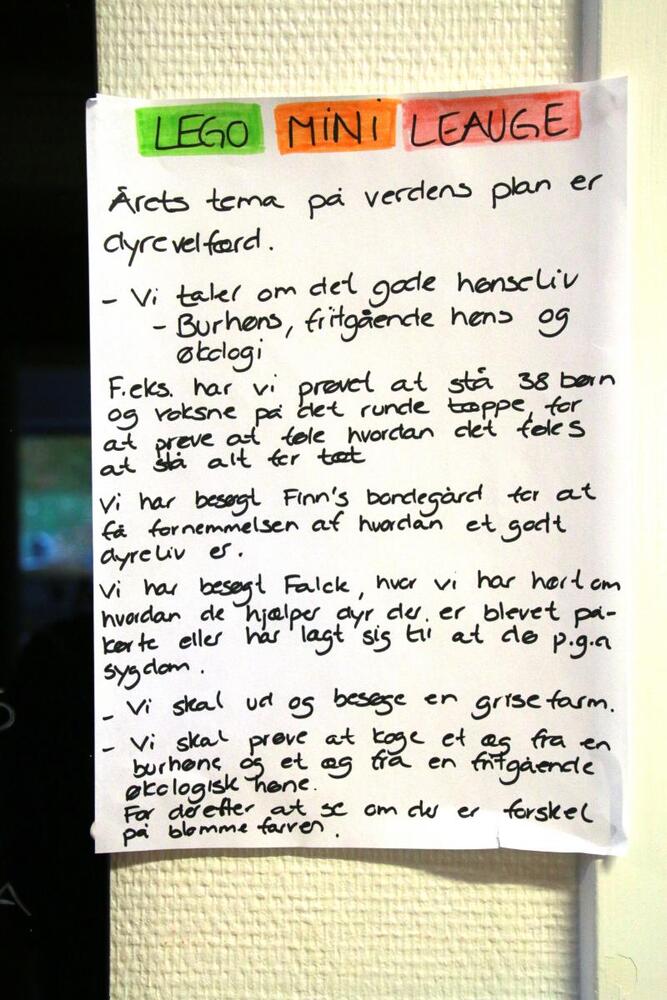 LEGO MINI LEAUGE
Årets tema på verdens plan er
dyrevelfærd.
- Vi taler om det gode hønseliv
- Burhøns, fritgående høns og
økologi
F.eks. har vi prøvet at stå 38 børn
og voksne på det runde tæppe, for
at prøve at føle hvordan det føles
at stå alt for tæt
Vi har besøgt Finn's bondegård for at
få fornemmelsen af hvordan et godt
dyreliv er.
Vi har besøgt Falck, hvor vi har hørt om
hvordan de hjælper dyr der er blevet på-
kørte eller har lagt sig til at dø p.g.a
sygdom.
- Vi skal ud og besøge en grisefarm.
- Vi skal prøve at koge et æg fra en
burhøne og et æg fra en fritgående
økologisk høne.
For derefter at se om der er forskel
på blomme farven.